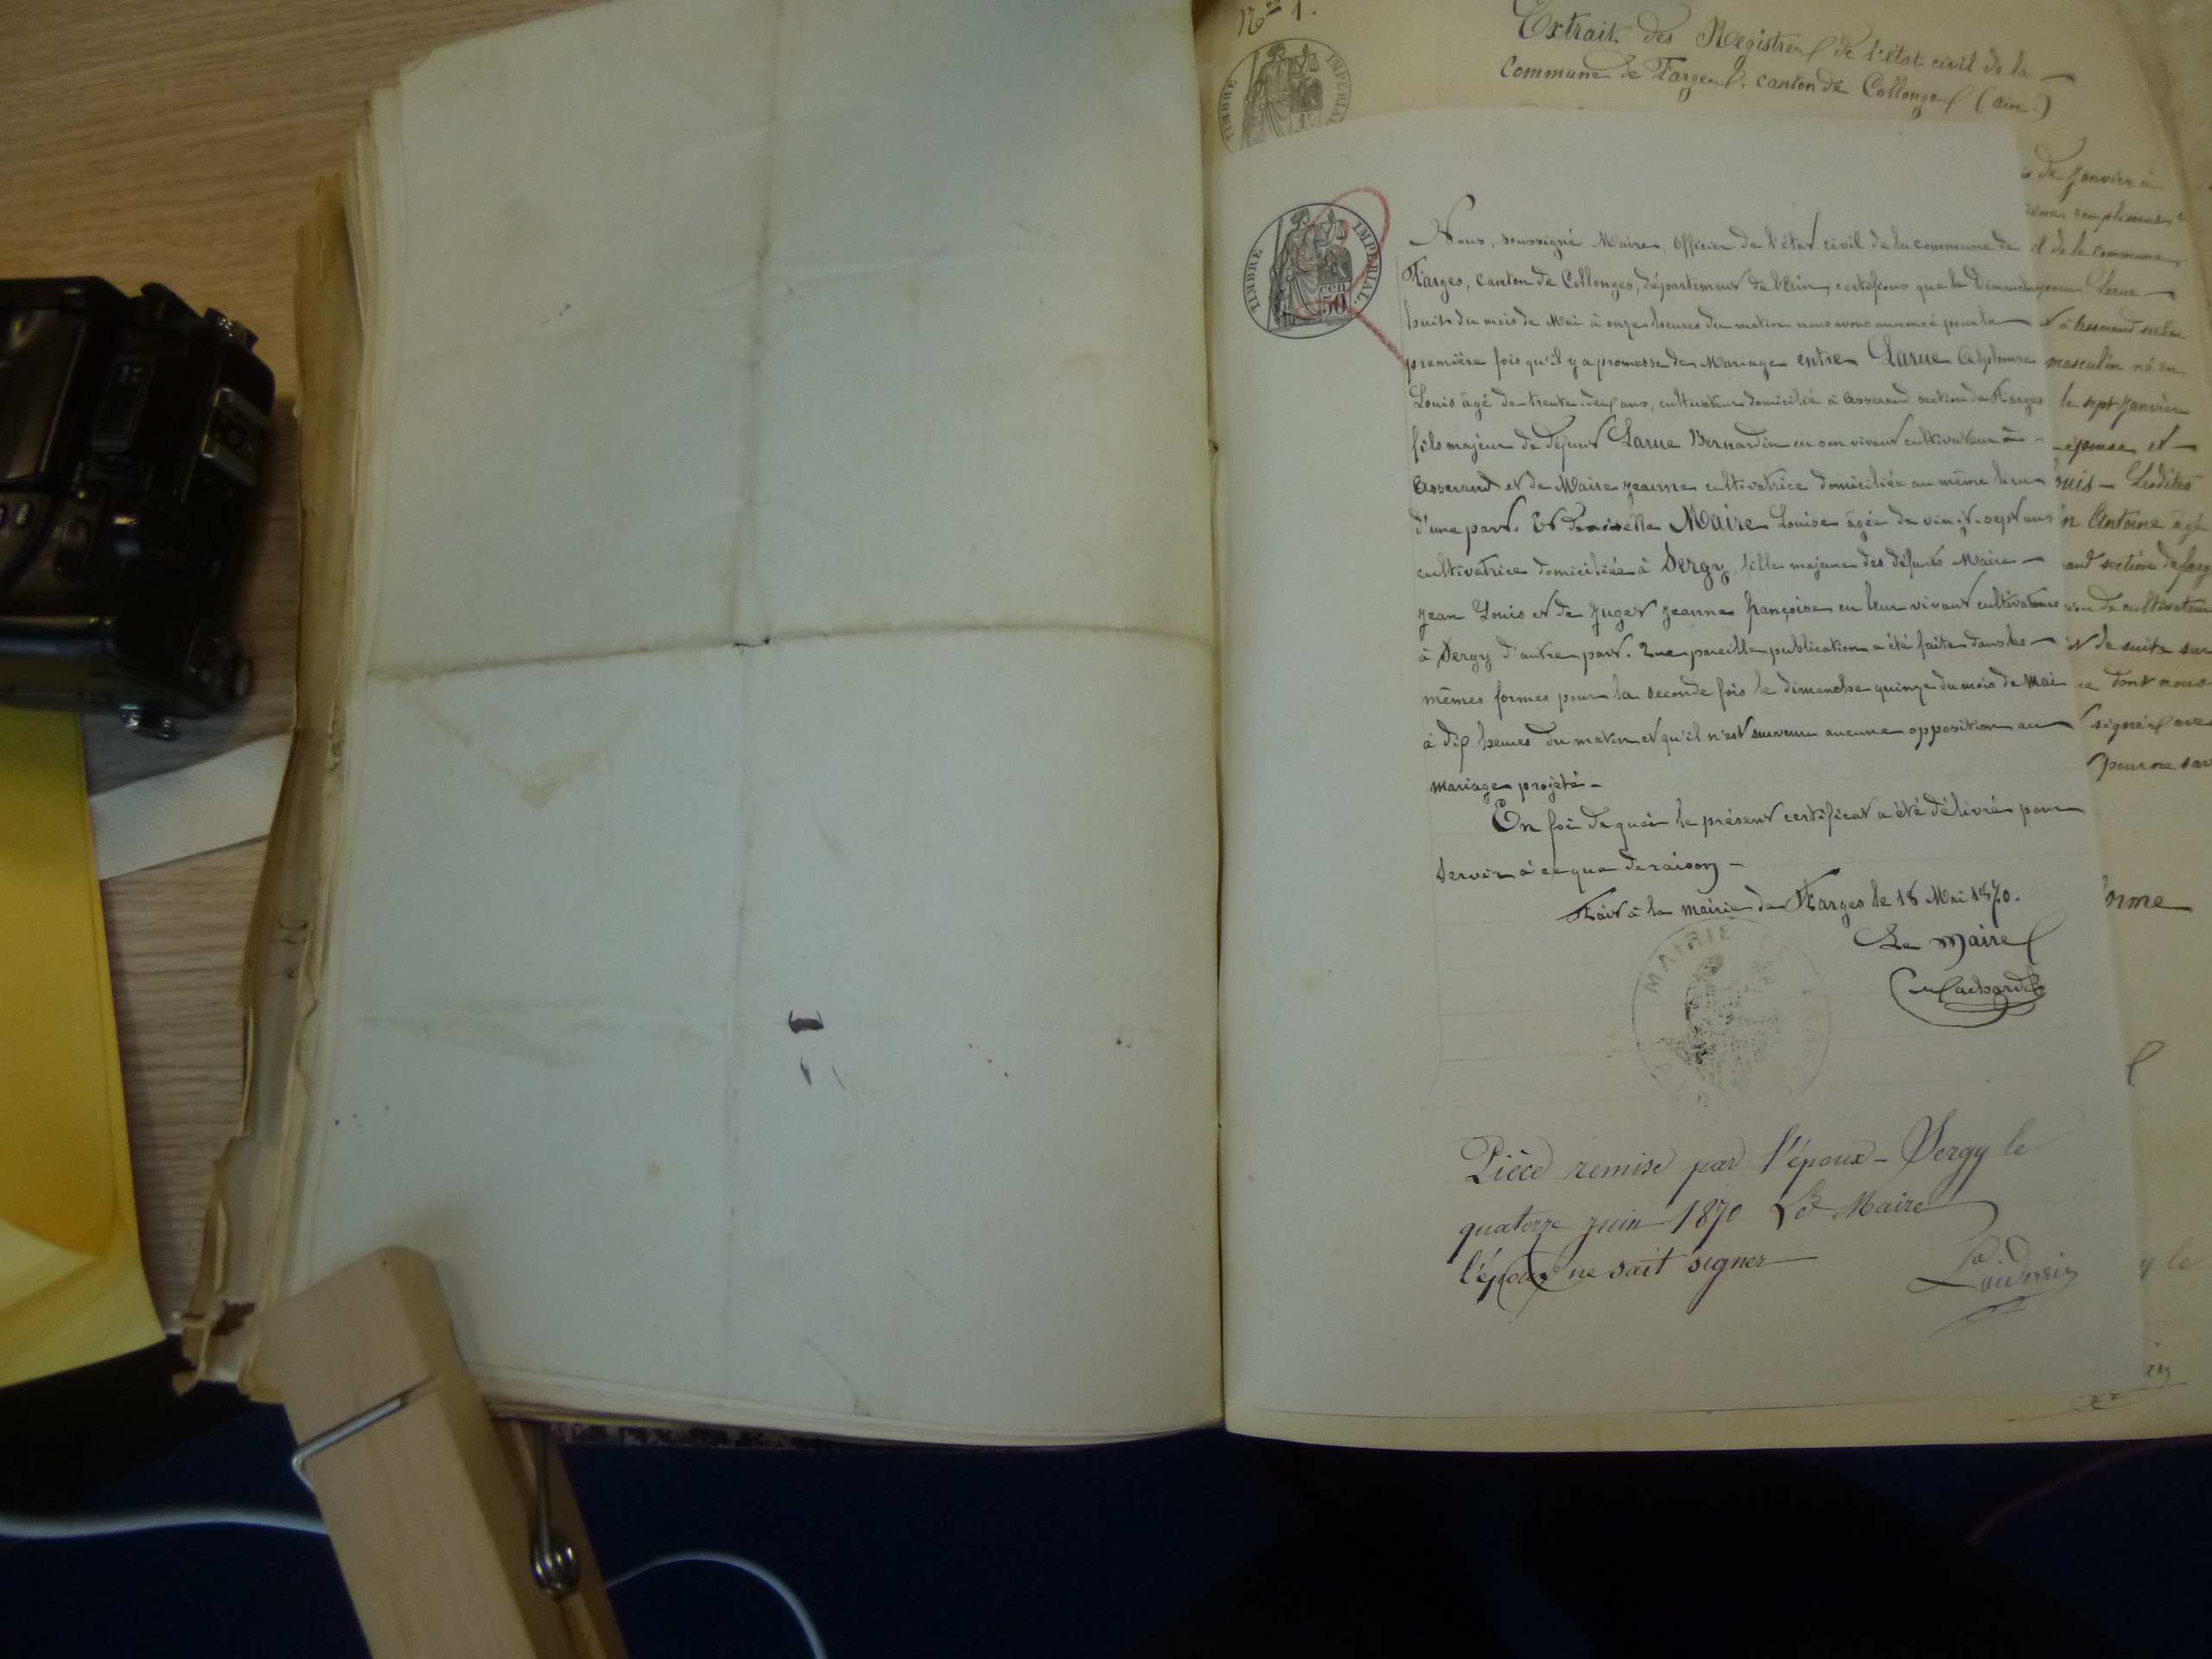 Nos 1.
Extrait des Registres de l'état civil de la
Commune de Farges, canton de Collonges (ain.)
TIMBRE IMPERIAL
1f
TIMBRE IMPERIAL.
50 cen
Nous, soussigné Maire, officier de l'état civil de la commune de
Farges, canton de Collonges, département de l'Ain, certifions que le Dimanche
huit du mois de Mai à onze heures du matin nous avons annoncé pour la
première fois qu'il y a promesse de Mariage entre Larue Alphonse
Louis âgé de trente-deux ans, cultivateur domicilié à Asserand section de Farges
fils majeur de défunt Larue Bernardin en son vivant cultivateur à
Asserand et de Maire Jeanne cultivatrice domiciliée au même lieu
d'une part. Et demoiselle Maire Louise âgée de vingt-sept ans
cultivatrice domiciliée à Sergy fille majeure des défunts Maire
Jean Louis et de Juget Jeanne françoise en leur vivant cultivateurs
à Sergy d'autre part. Que pareille publication a été faite dans les
mêmes formes pour la seconde fois le dimanche quinze du mois de Mai
à dix heures du matin et qu'il n'est survenu aucune opposition au
mariage projeté -
En foi de quoi le présent certificat a été délivré pour
servir à ce que de raison -
Fait à la mairie de Farges le 18 Mai 1870.
Le Maire
MAIRIE DE FARGES
AIN
Pièce remise par l'époux - Sergy le
quatorze juin 1870 Le Maire
l'époux ne sait signer
de Janvier à
remplissant
et de la commune
Larue
à Asserand section
masculin né en
le sept Janvier
épouse et
Louis - Lesdites
Antoine âgé
section de
de cultivateur
et de suite sur
ce dont nous
signé avec
pour ne sav
forme
y le